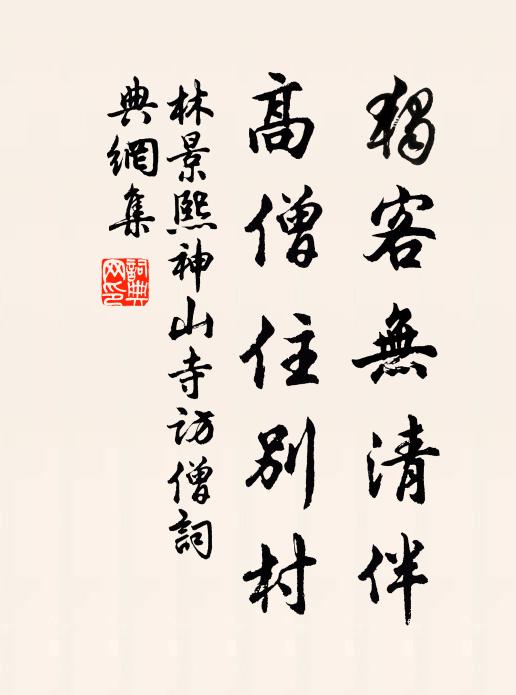 獨客無清伴
高僧住別村
林景熙神山寺訪僧詞
典網集
詞典
网印